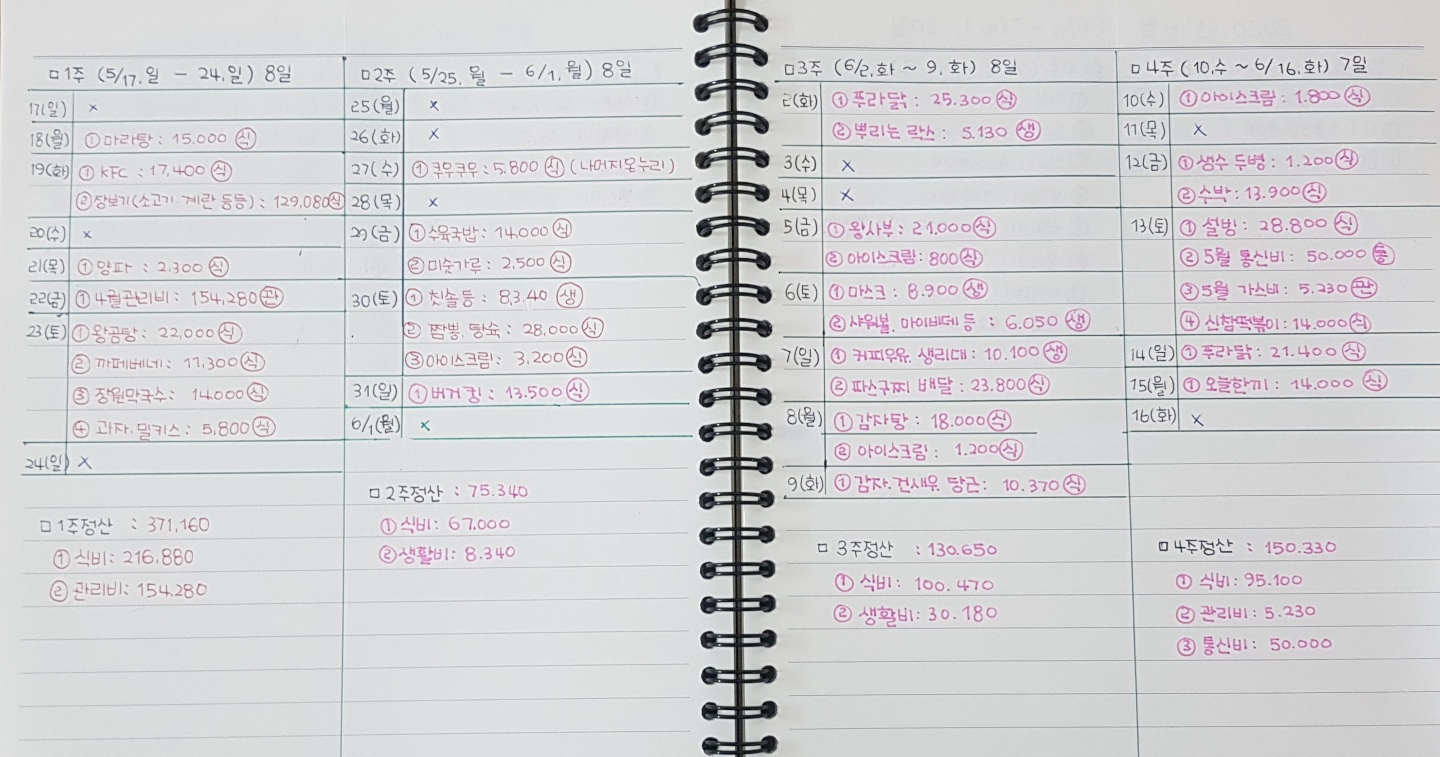 □1주 (5/17.일 - 24.일) 8일
17(일) x
18(월) ①마라탕: 15,000 식
19(화) ① KFC : 17,400 식
②장보기(소고기.계란 등등) : 129,080 식
20(수) x
21(목) ① 양파 : 2,300 식
22(금) ① 4월관리비: 154,280 관
23(토) ① 왕곰탕: 22,000 식
② 까페베네: 11,300 식
③ 장원막국수: 14,000 식
④ 과자.밀키스: 5,800 식
24(일) x
□1주정산 : 371,160
① 식비: 216,880
② 관리비: 154,280
□2주 (5/25.월 - 6/1.월) 8일
25(월) x
26(화) x
27(수) ①쿠우쿠우: 5,800 식 (나머지온누리)
28(목) x
29(금) ①수육국밥: 14,000 식
② 미숫가루: 2,500 식
30(토) ① 칫솔등: 8,3.40 생
② 짬뽕. 탕슉: 28,000 식
③아이스크림: 3,200 식
31(일) ①버거킹: 13.500 식
6/1(월) x
□2주정산 : 75.340
①식비: 67.000
②생활비: 8.340
□3주 (6/2.화 ~ 9.화) 8일
2(화) ①푸라닭: 25.300 식
②뿌리는 락스: 5.130 생
3(수) x
4(목) x
5(금) ① 왕사부: 21.000 식
② 아이스크림: 800 식
6(토) ① 마스크: 8.900 생
② 샤워볼. 마이비데 등 : 6.050 생
7(일) ① 커피우유. 생리대: 10.100 생
② 파스쿠찌 배달: 23.800 식
8(월) ① 감자탕: 18.000 식
② 아이스크림: 1.200 식
9(화) ① 감자.건새우. 당근: 10.370 식
□ 3주정산 : 130.650
① 식비: 100.470
② 생활비: 30.180
□4주 (10.수 ~ 6/16.화) 7일
10(수) ①아이스크림: 1.800 식
11(목) x
12(금) ①생수 두병: 1.200 식
②수박: 13.900 식
13(토) ① 설빙: 28.800 식
② 5월 통신비: 50.000 통
③5월 가스비: 5.230 관
④ 신참떡볶이: 14.000 식
14(일) ① 푸라닭: 21.400 식
15(월) ① 오늘한끼: 14.000 식
16(화) x
□4주정산 : 150.330
① 식비: 95.100
② 관리비: 5.230
③ 통신비: 50.000